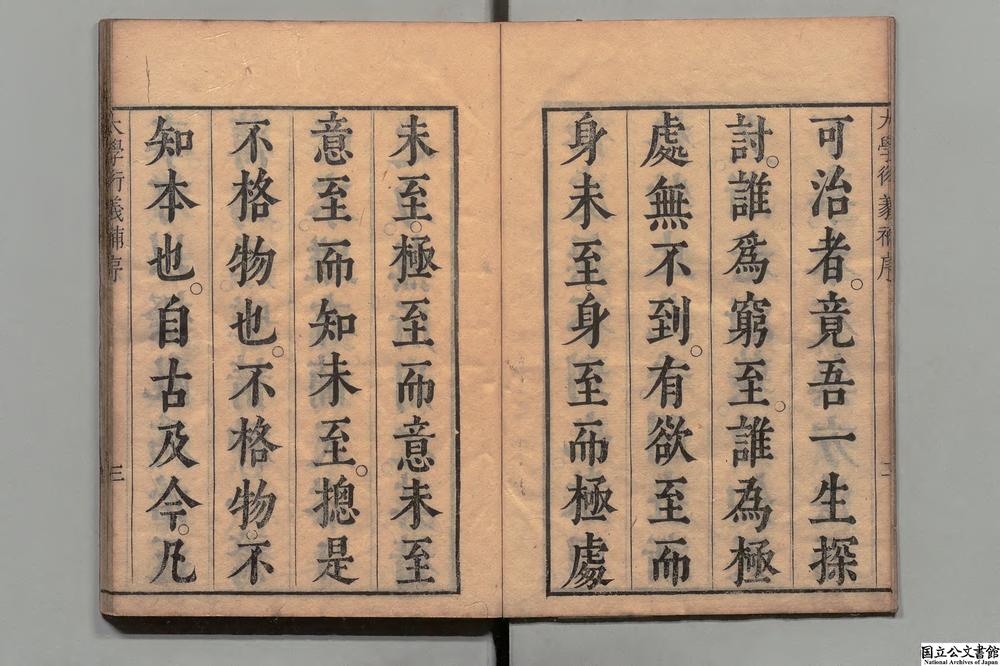 可治者。竟吾一生探
討。誰爲窮至。誰為極
處無不到。有欲至而
身未至。身至而極處
未至。極至而意未至
意至而知未至。揔是
不格物也。不格物。不
知本也。自古及今。凡
大學衍義補序
二
大學衍義補序
三
国立公文書館
National Archives of Japan